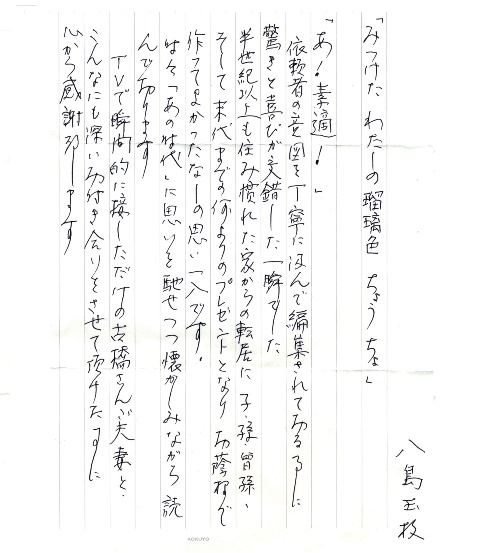 「みつけた わたしの瑠璃色 ちょうちょ」
八島玉枝
「あ!素適!」
依頼者の意図を丁寧に汲んで編集されてゐる事に
驚きと喜びが交錯した一瞬でした
半世紀以上も住み慣れた家からの転居に子・孫・曾孫、
そして末代までの何よりのプレゼントとなり お蔭様で
作ってよかったなーの思い一入です。
時々「あの時代」に思いを馳せつつ懐かしみながら 読
んで居ります
TVで瞬間的に接しただけの古橋さんご夫妻と、
こんなにも深いお付き合いをさせて頂けた事に
心から感謝致します
KOKUYO